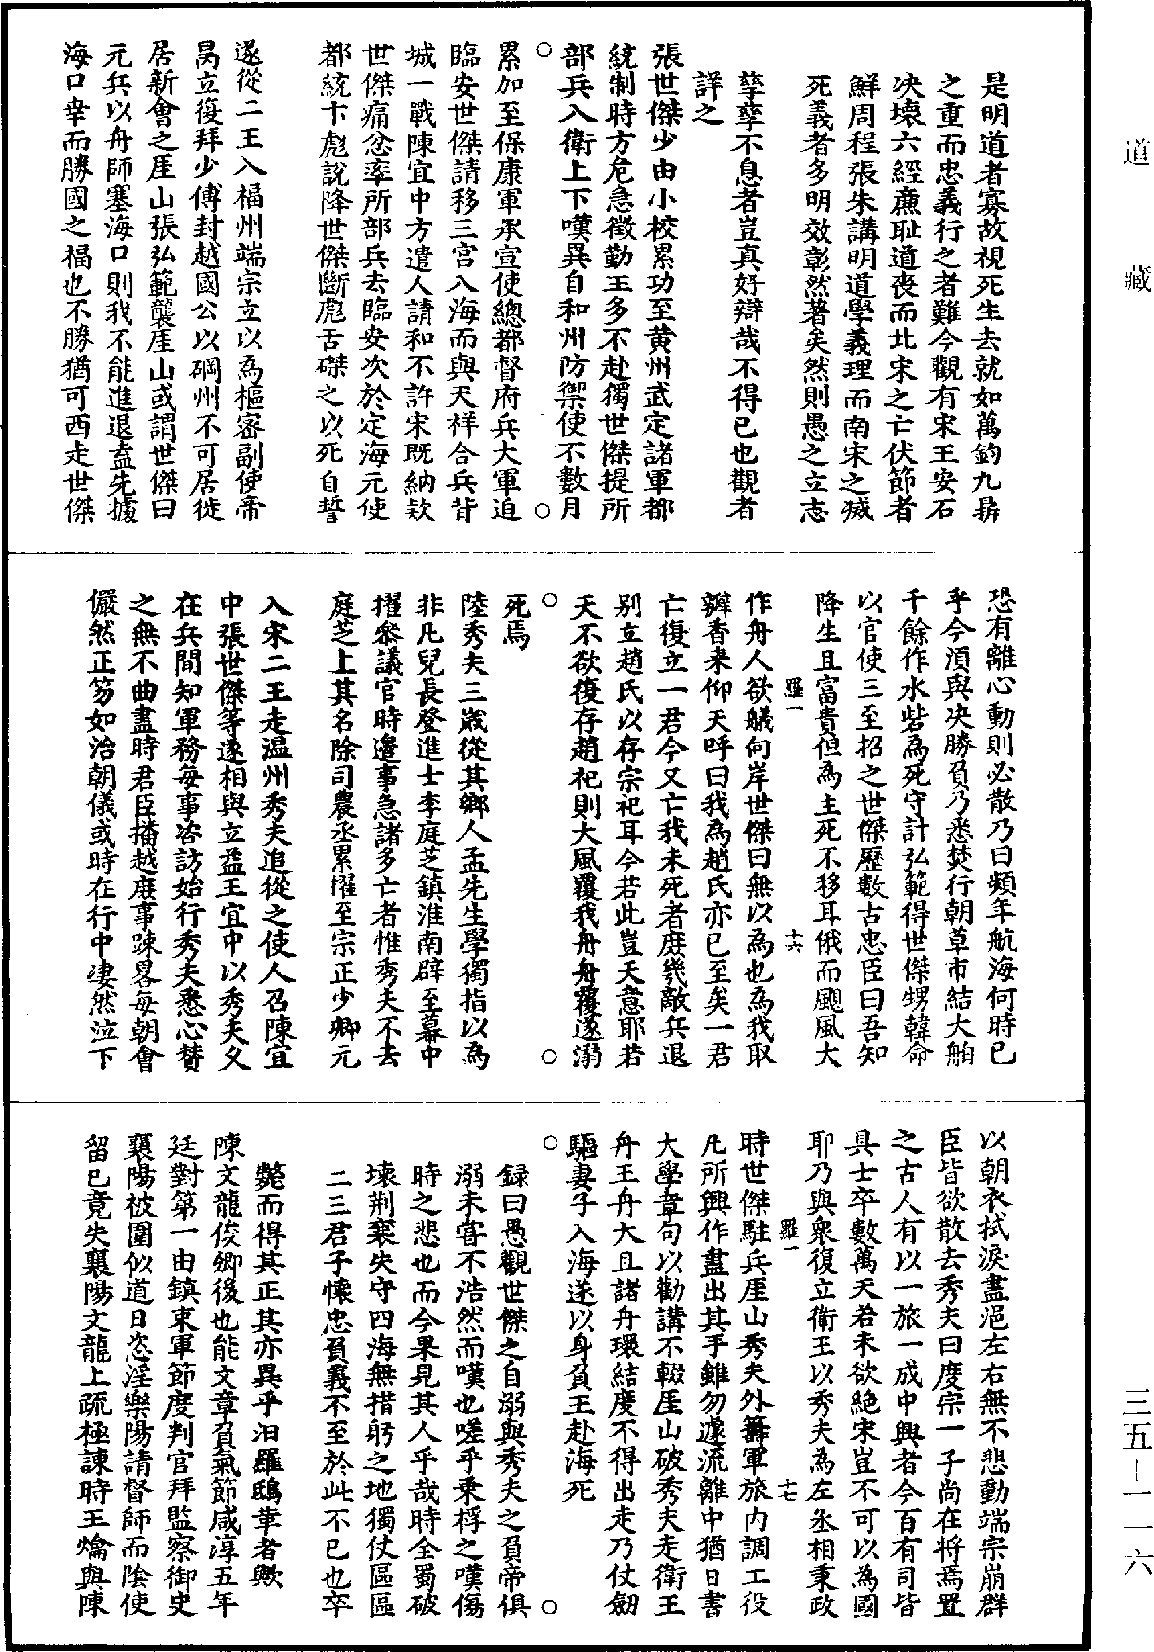 道藏
三五－一一六
是明道者寡故視死生去就如萬鈞九鼎
之重而忠義行之者難今觀有宋王安石
决壞六經亷耻道喪而北宋之亡伏節者
鮮周程張朱講明道學義理而南宋之滅
死義者多明效彰然著矣然則愚之立志
孳孳不息者豈真好辯哉不得已也觀者
詳之
張世傑少由小校累功至黄州武定諸軍都
統制時方危急徵勤王多不赴獨世傑提所
部兵入衛上下嘆異自和州防禦使不數月
○○
累加至保康軍承宣使總都督府兵大軍迫
臨安世傑請移三宮入海而與天祥合兵背
城一戰陳宜中方遣人請和不許宋既納欵
世傑痛忿率所部兵去臨安次於定海元使
都統卞彪說降世傑斷彪舌磔之以死自誓
遂從二王入福州端宗立以為樞密副使帝
昺立復拜少傅封越國公以碙州不可居徙
居新會之厓山張弘範襲厓山或謂世傑曰
元兵以舟師塞海口則我不能進退盍先據
海口幸而勝國之福也不勝猶可西走世傑
恐有離心動則必散乃曰頻年航海何時已
乎今湏與决勝負乃悉焚行朝草市結大舶
千餘作水砦為死守計弘範得世傑甥韓命
以官使三至招之世傑歷數古忠臣曰吾知
降生且富貴但為主死不移耳俄而颶風大
羅一
十六
作舟人欲艤向岸世傑曰無以為也為我取
瓣香来仰天呼曰我為趙氏亦已至矣一君
亡復立一君今又亡我未死者庶㡬敵兵退
别立趙氏以存宗祀耳今若此豈天意耶若
天不欲復存趙祀則大風覆我舟舟覆遂溺
○○
死焉
陸秀夫三歲從其鄉人孟先生學獨指以為
非凡兒長登進士李庭芝鎮淮南辟至幕中
擢叅議官時邊事急諸多亡者惟秀夫不去
庭芝上其名除司農丞累擢至宗正少卿元
入宋二王走溫州秀夫追從之使人召陳宜
中張世傑等遂相與立益王宜中以秀夫乆
在兵間知軍務每事咨訪始行秀夫悉心賛
之無不曲盡時君臣播越庶事踈畧每朝會
儼然正笏如治朝儀或時在行中凄然泣下
以朝衣拭淚盡浥左右無不悲動端宗崩群
臣皆欲散去秀夫曰度宗一子尚在将焉置
之古人有以一旅一成中興者今百有司皆
具士卒數萬天若未欲絶宋豈不可以為國
耶乃與衆復立衛王以秀夫為左丞相秉政
羅一
十七
時世傑駐兵厓山秀夫外籌軍旅内調工役
凡所興作盡出其手雖勿遽流離中猶日書
大學章句以勸講不輟厓山破秀夫走衛王
舟王舟大且諸舟環結度不得出走乃仗劒
驅妻子入海遂以身負王赴海死
○○
録曰愚觀世傑之自溺與秀夫之負帝俱
溺未甞不浩然而嘆也嗟乎乗桴之嘆傷
時之悲也而今果見其人乎哉時全蜀破
壞荆襄失守四海無措躬之地獨仗區區
二三君子懷忠負義不至於此不已也卒
斃而得其正其亦異乎汨羅鴟革者歟
陳文龍俊卿後也能文章負氣節咸淳五年
廷對第一由鎮東軍節度判官拜監察御史
襄陽被圍似道日恣淫樂陽請督師而陰使
留已竟失襄陽文龍上疏極諫時王爚與陳